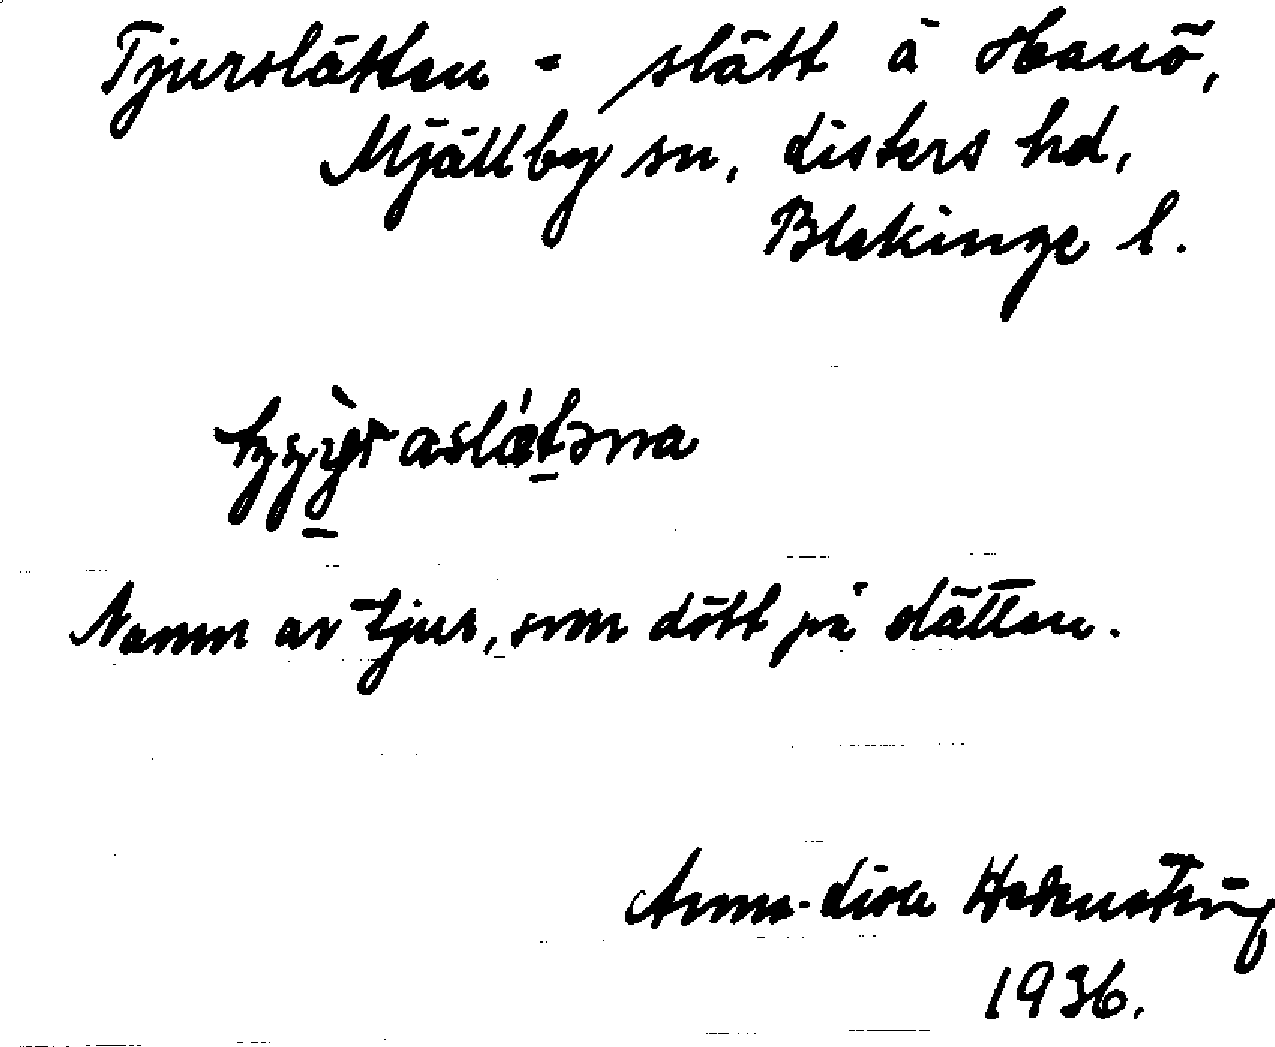 Tjurslätten - slätt å Hanö,
Mjällby sn, Listers hd,
Blekinge l.
Namn av tjur, som dött på slätten.
Anna-Lisa
1936.